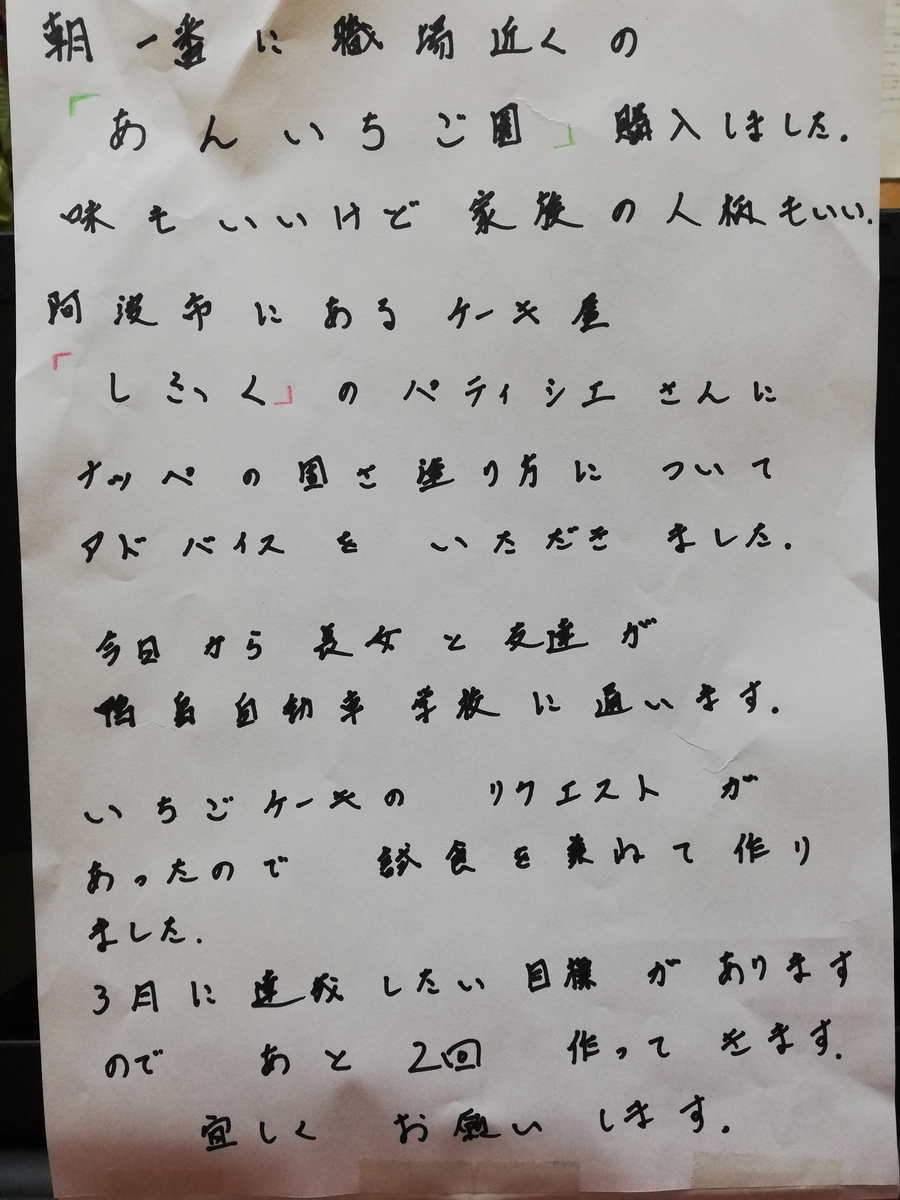 朝一番に職場近くの
「あんいちご園」購入しました。
味もいいけど家族の人柄もいい。
阿波市にあるケーキ屋
「しろっく」のパティシエさんに
ナッペの固さ塗り方について
アドバイスをいただきました。
今日から長女と友達が
鴨島自動車学校に通います。
いちごケーキのリクエストが
あったので試食を兼ねて作り
ました。
3月に達成したい目標があります
のであと2回作ってきます。
宜しくお願いします。